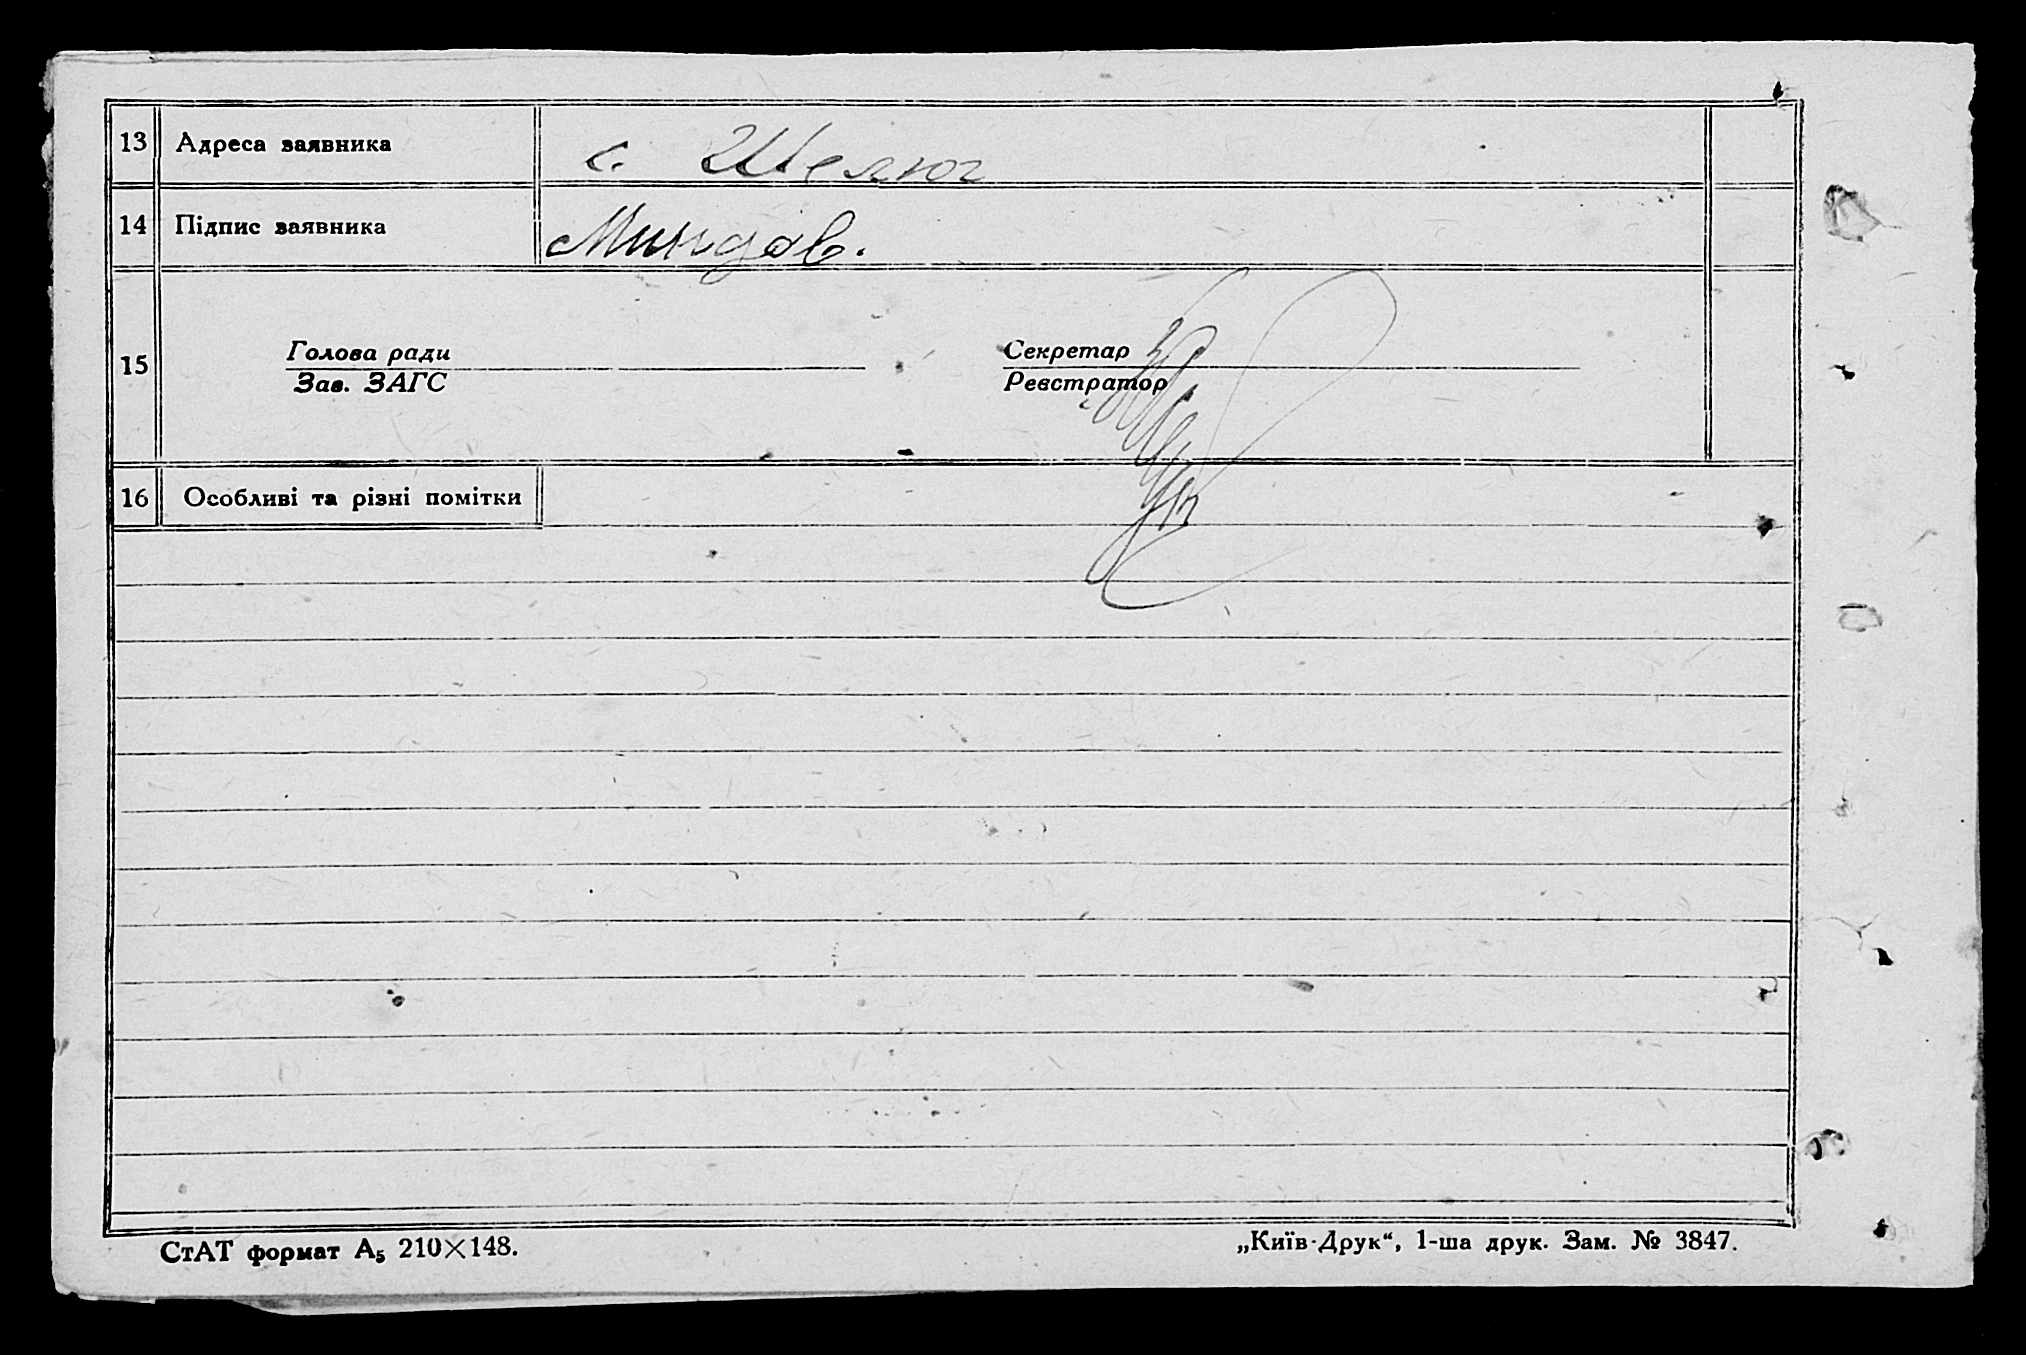 13 Адреса заявника с. Шелюг
14 Підпис заявника Миндов.
15 Голова ради Секретар
Зав. ЗАГС Реєстратор
16 Особливі та різні помітки
СтАТ формат А₅ 210×148. „Київ-Друк“, 1-ша друк. Зам. № 3847.